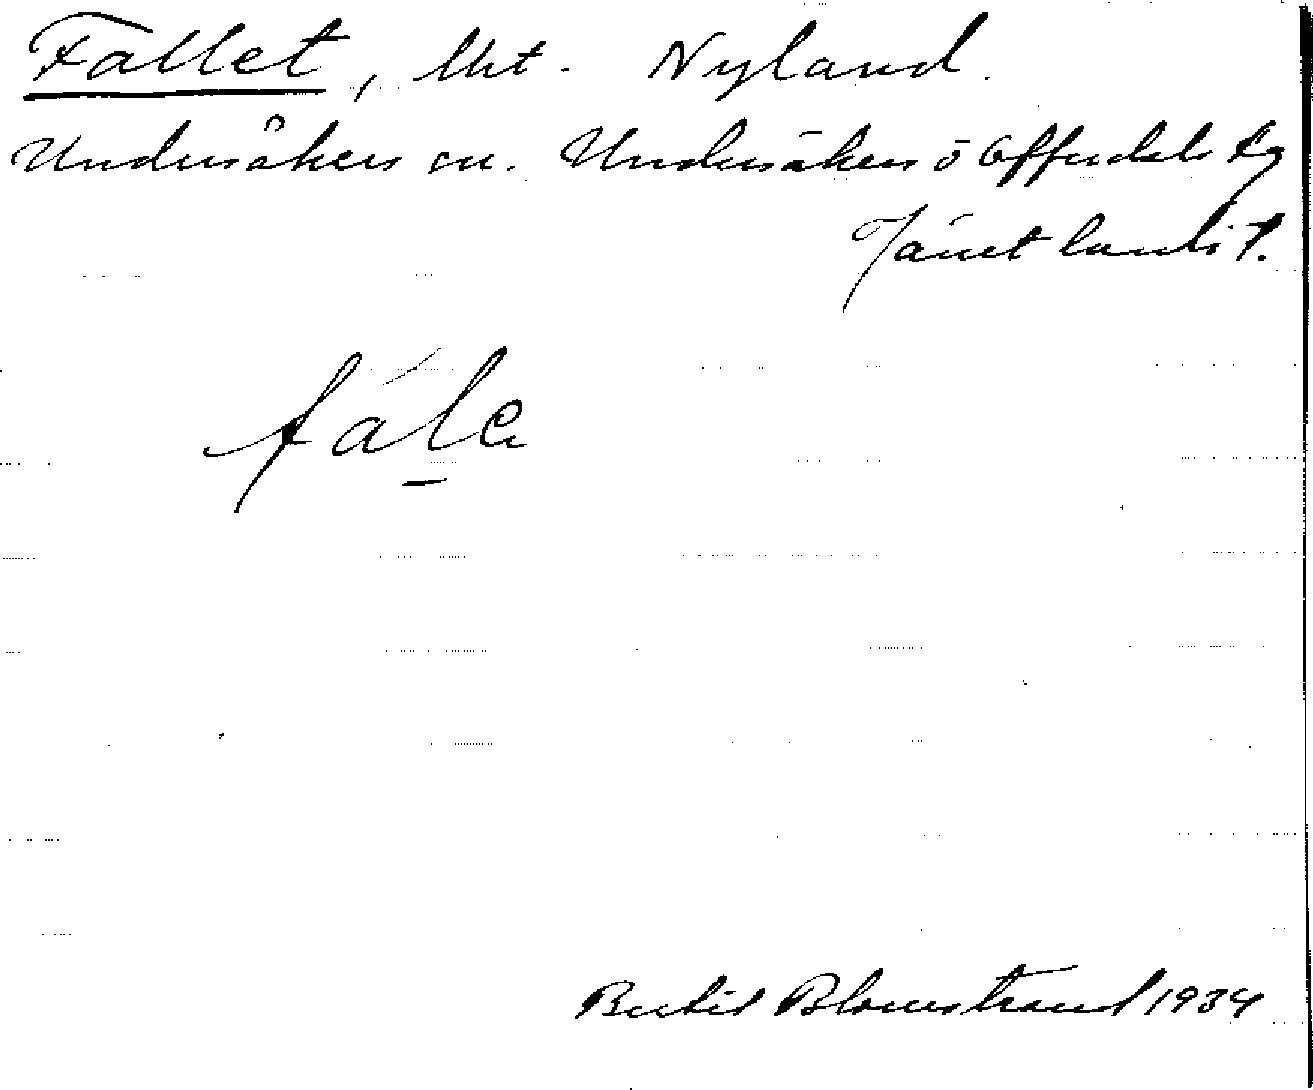 Fallet, lht. Nyland.
Undersåkers sn. Undersåkers o Offerdals tg
Jämtlands l.
fálα
Bertil Blomstrand 1934